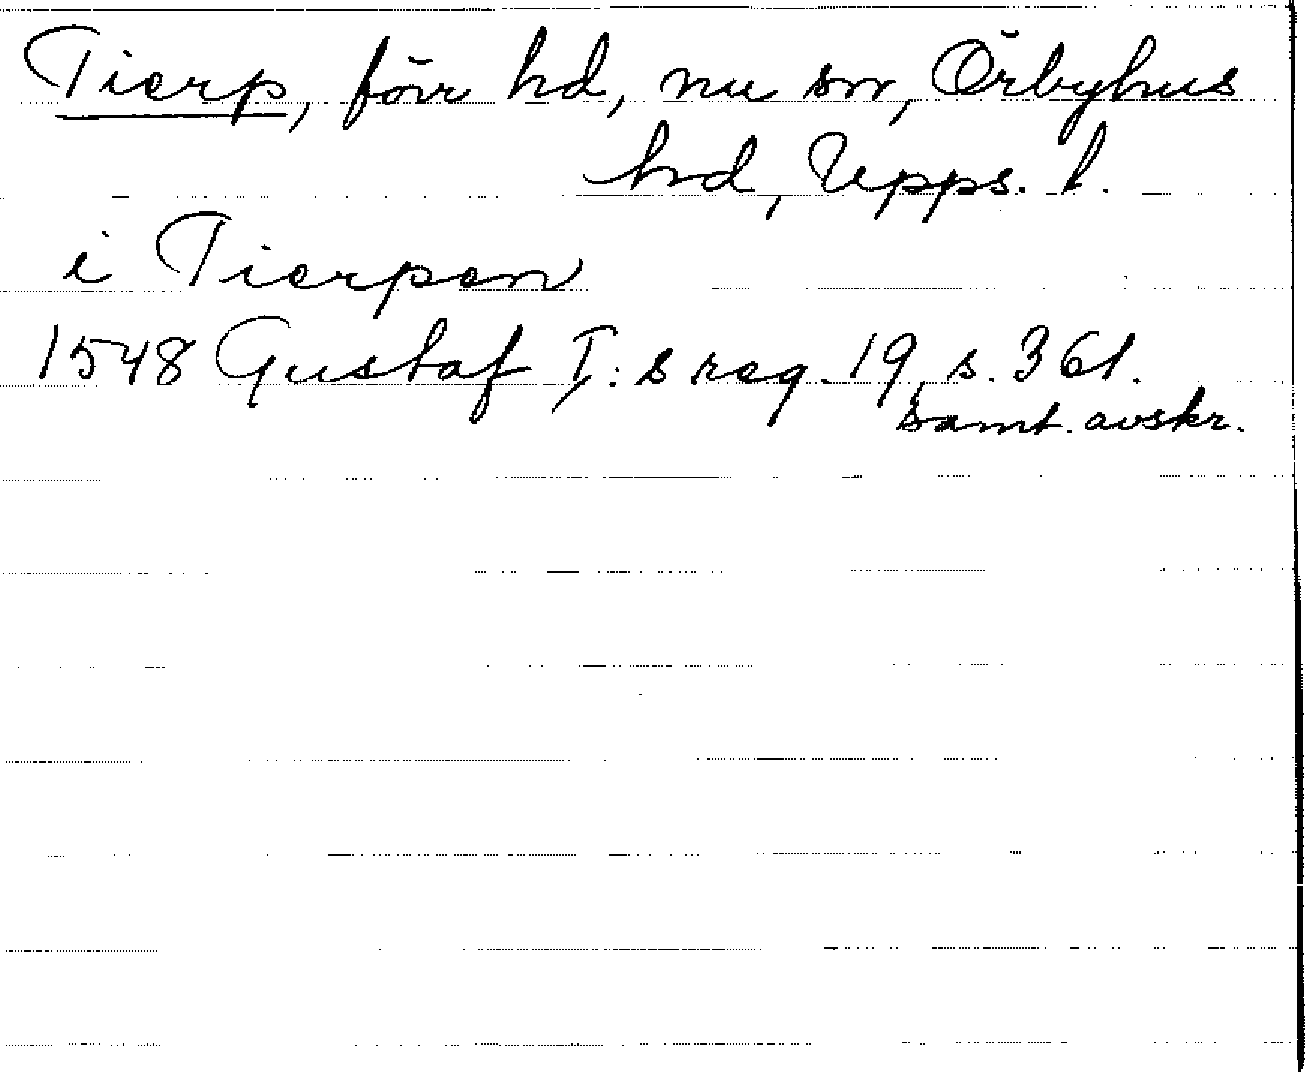 Tierp, förr hd, nu sn, Örbyhus
hd, Upps. l.
i Tierpen
1548 Gustaf I:s reg. 19, s. 361.
samt. avskr.